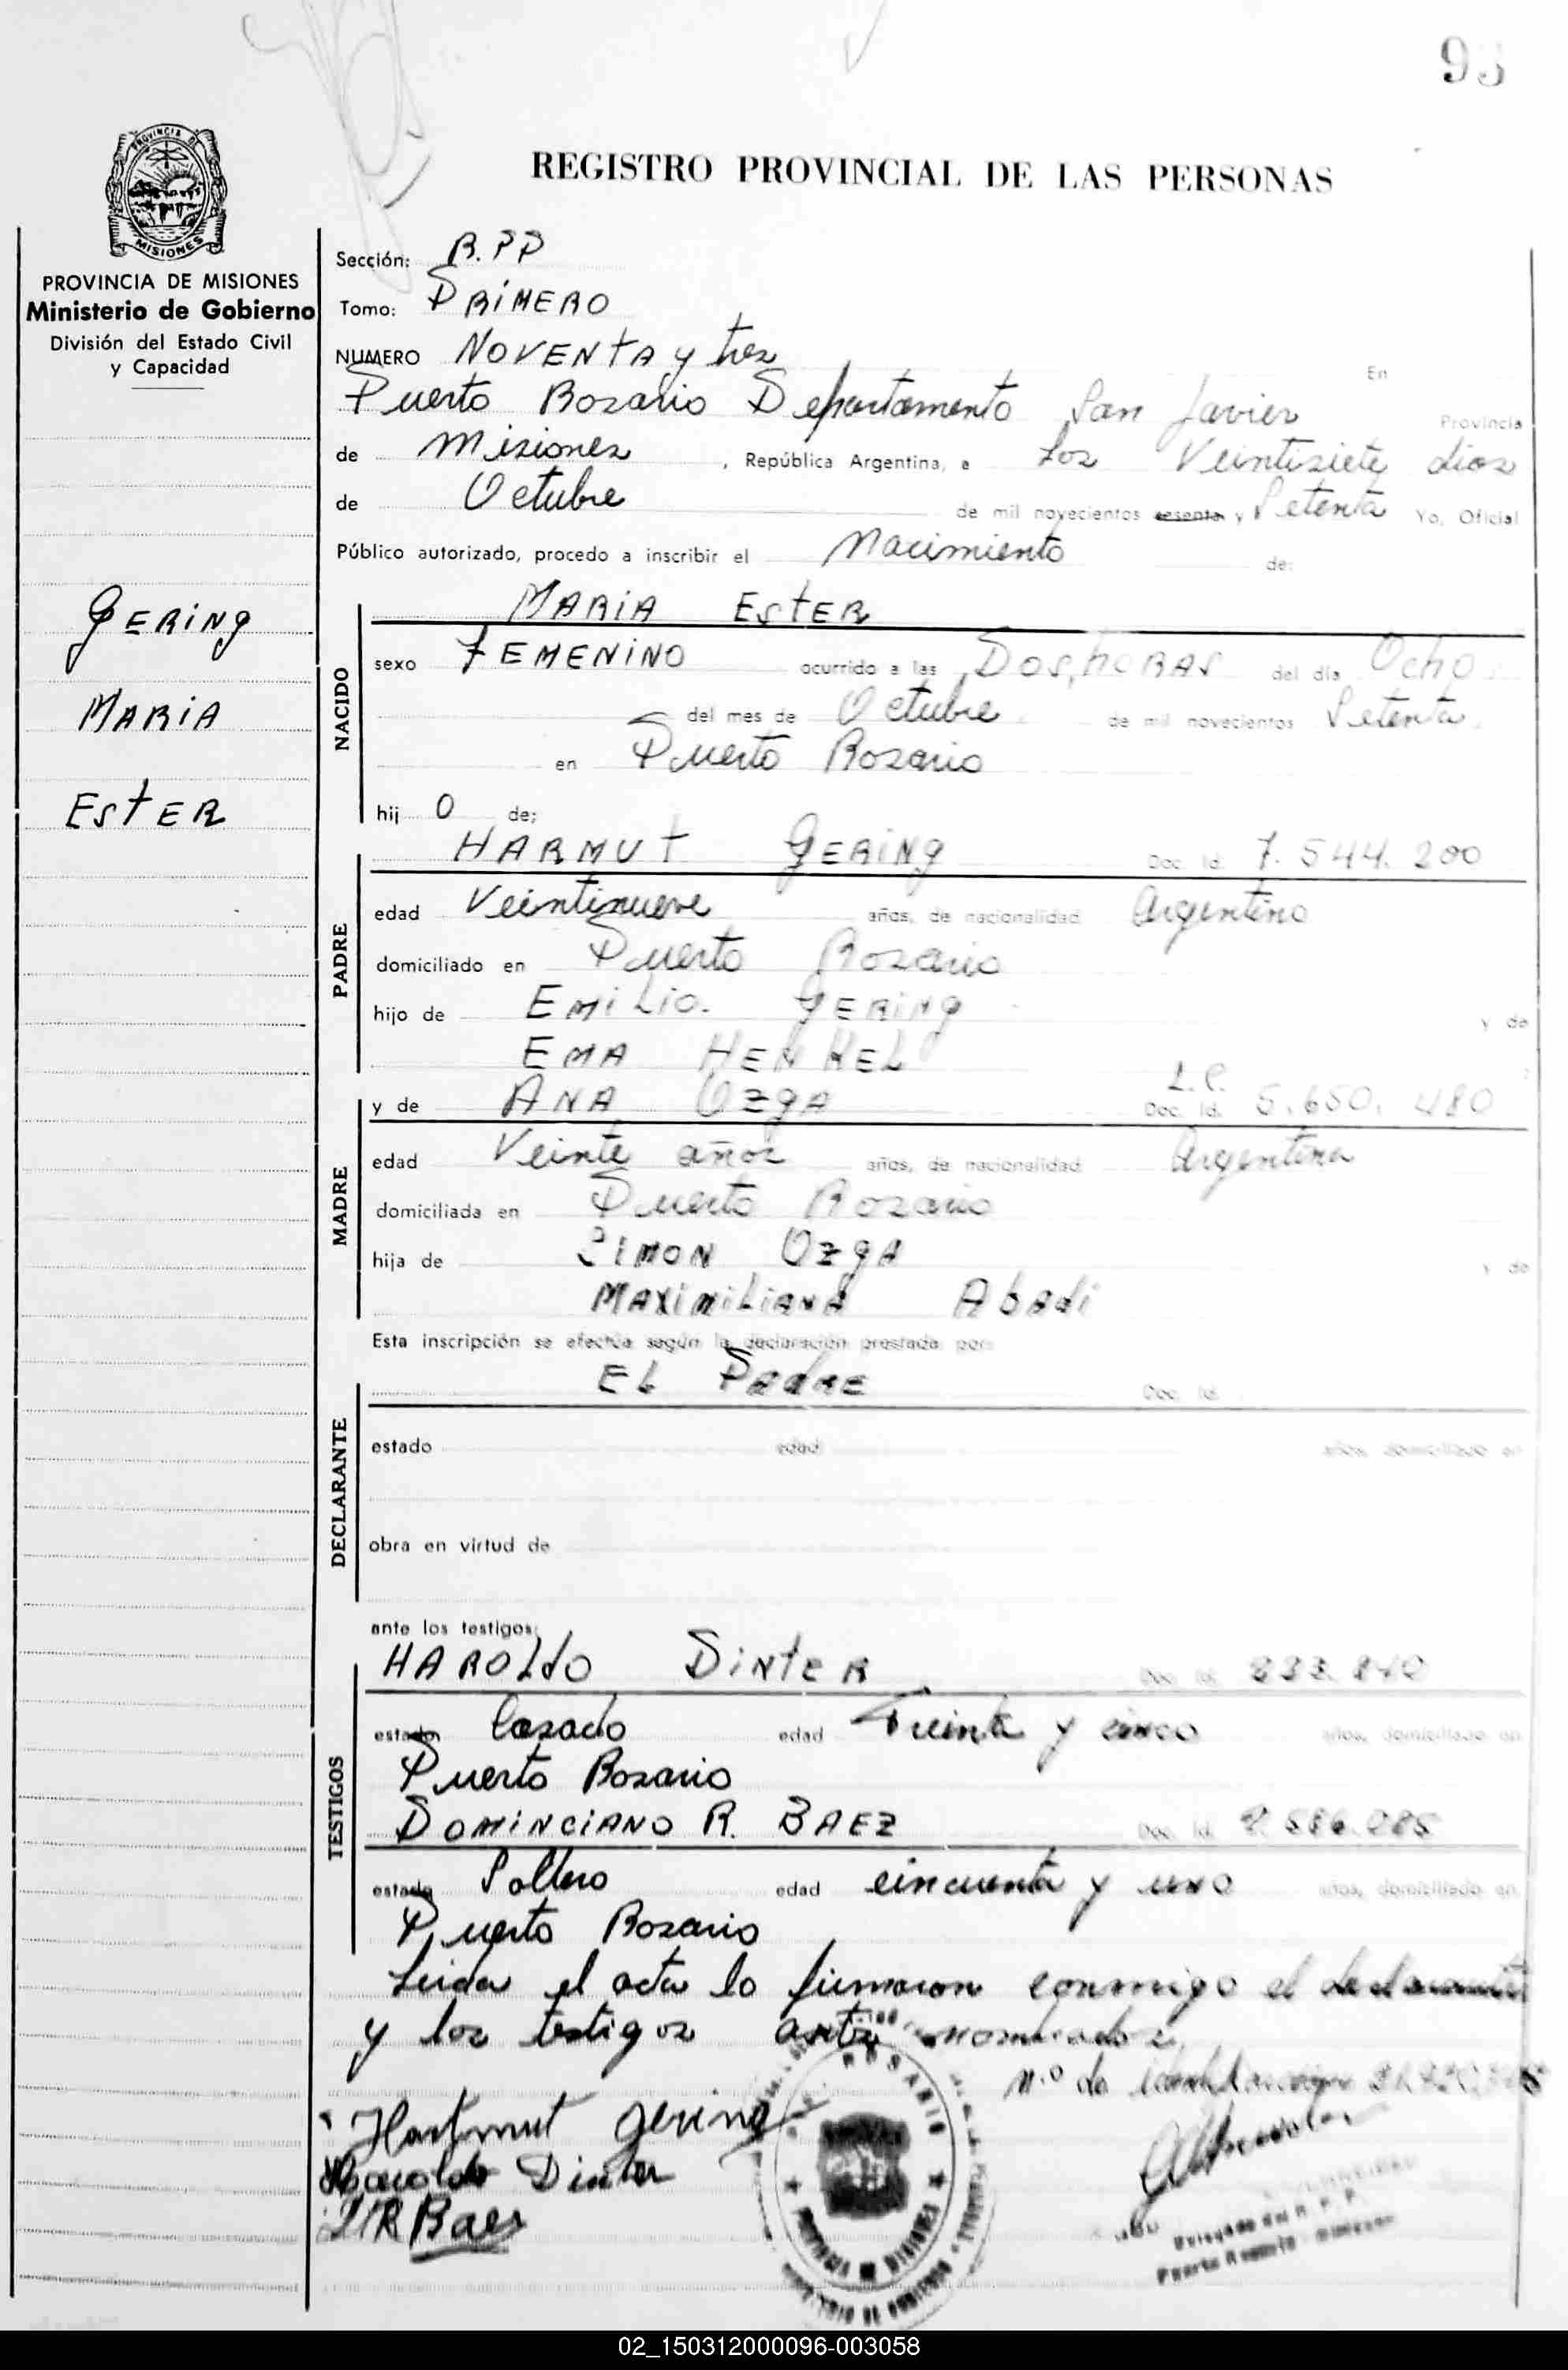 93
REGISTRO PROVINCIAL DE LAS PERSONAS
PROVINCIA DE MISIONES
Ministerio de Gobierno
División del Estado Civil
y Capacidad
GERING
MARIA
ESTER
Sección: R.PP
Tomo: PRIMERO
NUMERO NOVENTA y tres En
Puerto Rosario Departamento San Javier Provincia
de Misiones, República Argentina, a los Veintisiete dias
de Octubre de mil novecientos sesenta y Setenta Yo, Oficial
Público autorizado, procedo a inscribir el Nacimiento de:
NACIDO
MARIA ESTER
sexo FEMENINO ocurrido a las DOS, hORAS del día Ocho
del mes de Octubre de mil novecientos Setenta
en Puerto Rosario
hij O de:
PADRE
HARMUT GERING Doc. Id. 7.544.200
edad Veintinueve años, de nacionalidad Argentino
domiciliado en Puerto Rosario
hijo de EMILIO. GERING y de
EMA HENKEL
MADRE
y de ANA OZGA L.C. Doc. Id. 5.650.480
edad Veinte años años, de nacionalidad Argentina
domiciliada en Puerto Rosario
hija de SIMON OZGA y de
MAXIMILIANA Abadi
Esta inscripción se efectúa según la declaración prestada por:
DECLARANTE
EL PADRE Doc. Id.
estado edad años, domiciliado en
obra en virtud de
ante los testigos:
TESTIGOS
HAROLdO DINTER Doc. Id.
estado Casado edad Treinta y cinco años, domiciliado en
Puerto Rosario
DOMINCIANO R. BAEZ Doc. Id.
estado Soltero edad cincuenta y uno años, domiciliado en
Puerto Rosario
Leida el acta lo firmaron conmigo el declarante
y los testigos ante nombrados
n.º de
Hartmut Gering
Haroldo Dinter
DR Baez
ROSARIO
PROVINCIA DE MISIONES
MINISTERIO DE GOBIERNO
Delegado del R. P. P.
Puerto Rosario - Misiones
02_150312000096-003058